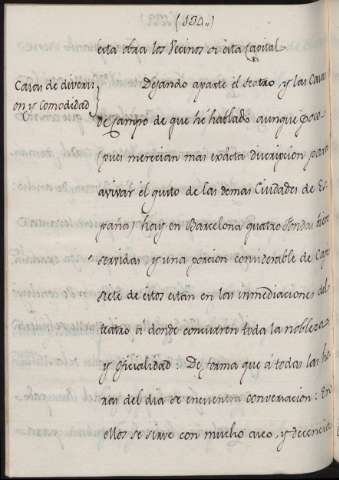 (154..)
esta obra los Vecinos de esta Capital.
Casas de diversi
on y comodidad
Dejando aparte el teatro, y las Casas
de Campo de que hé hablado aunque poco
(pues merecian mas exacta discripcion para
avivar el gusto de las demas Ciudades de Es
paña) hay en Barcelona quatro Fondas bien
servidas y una porcion considerable de Cafe
siete de estos están en las inmediaciones del
teatro a donde concurren toda la nobleza
y oficialidad: De forma que á todas las ho
ras del dia se encuentra conversacion: En
ellos se sirve con mucho aseo, y decencia